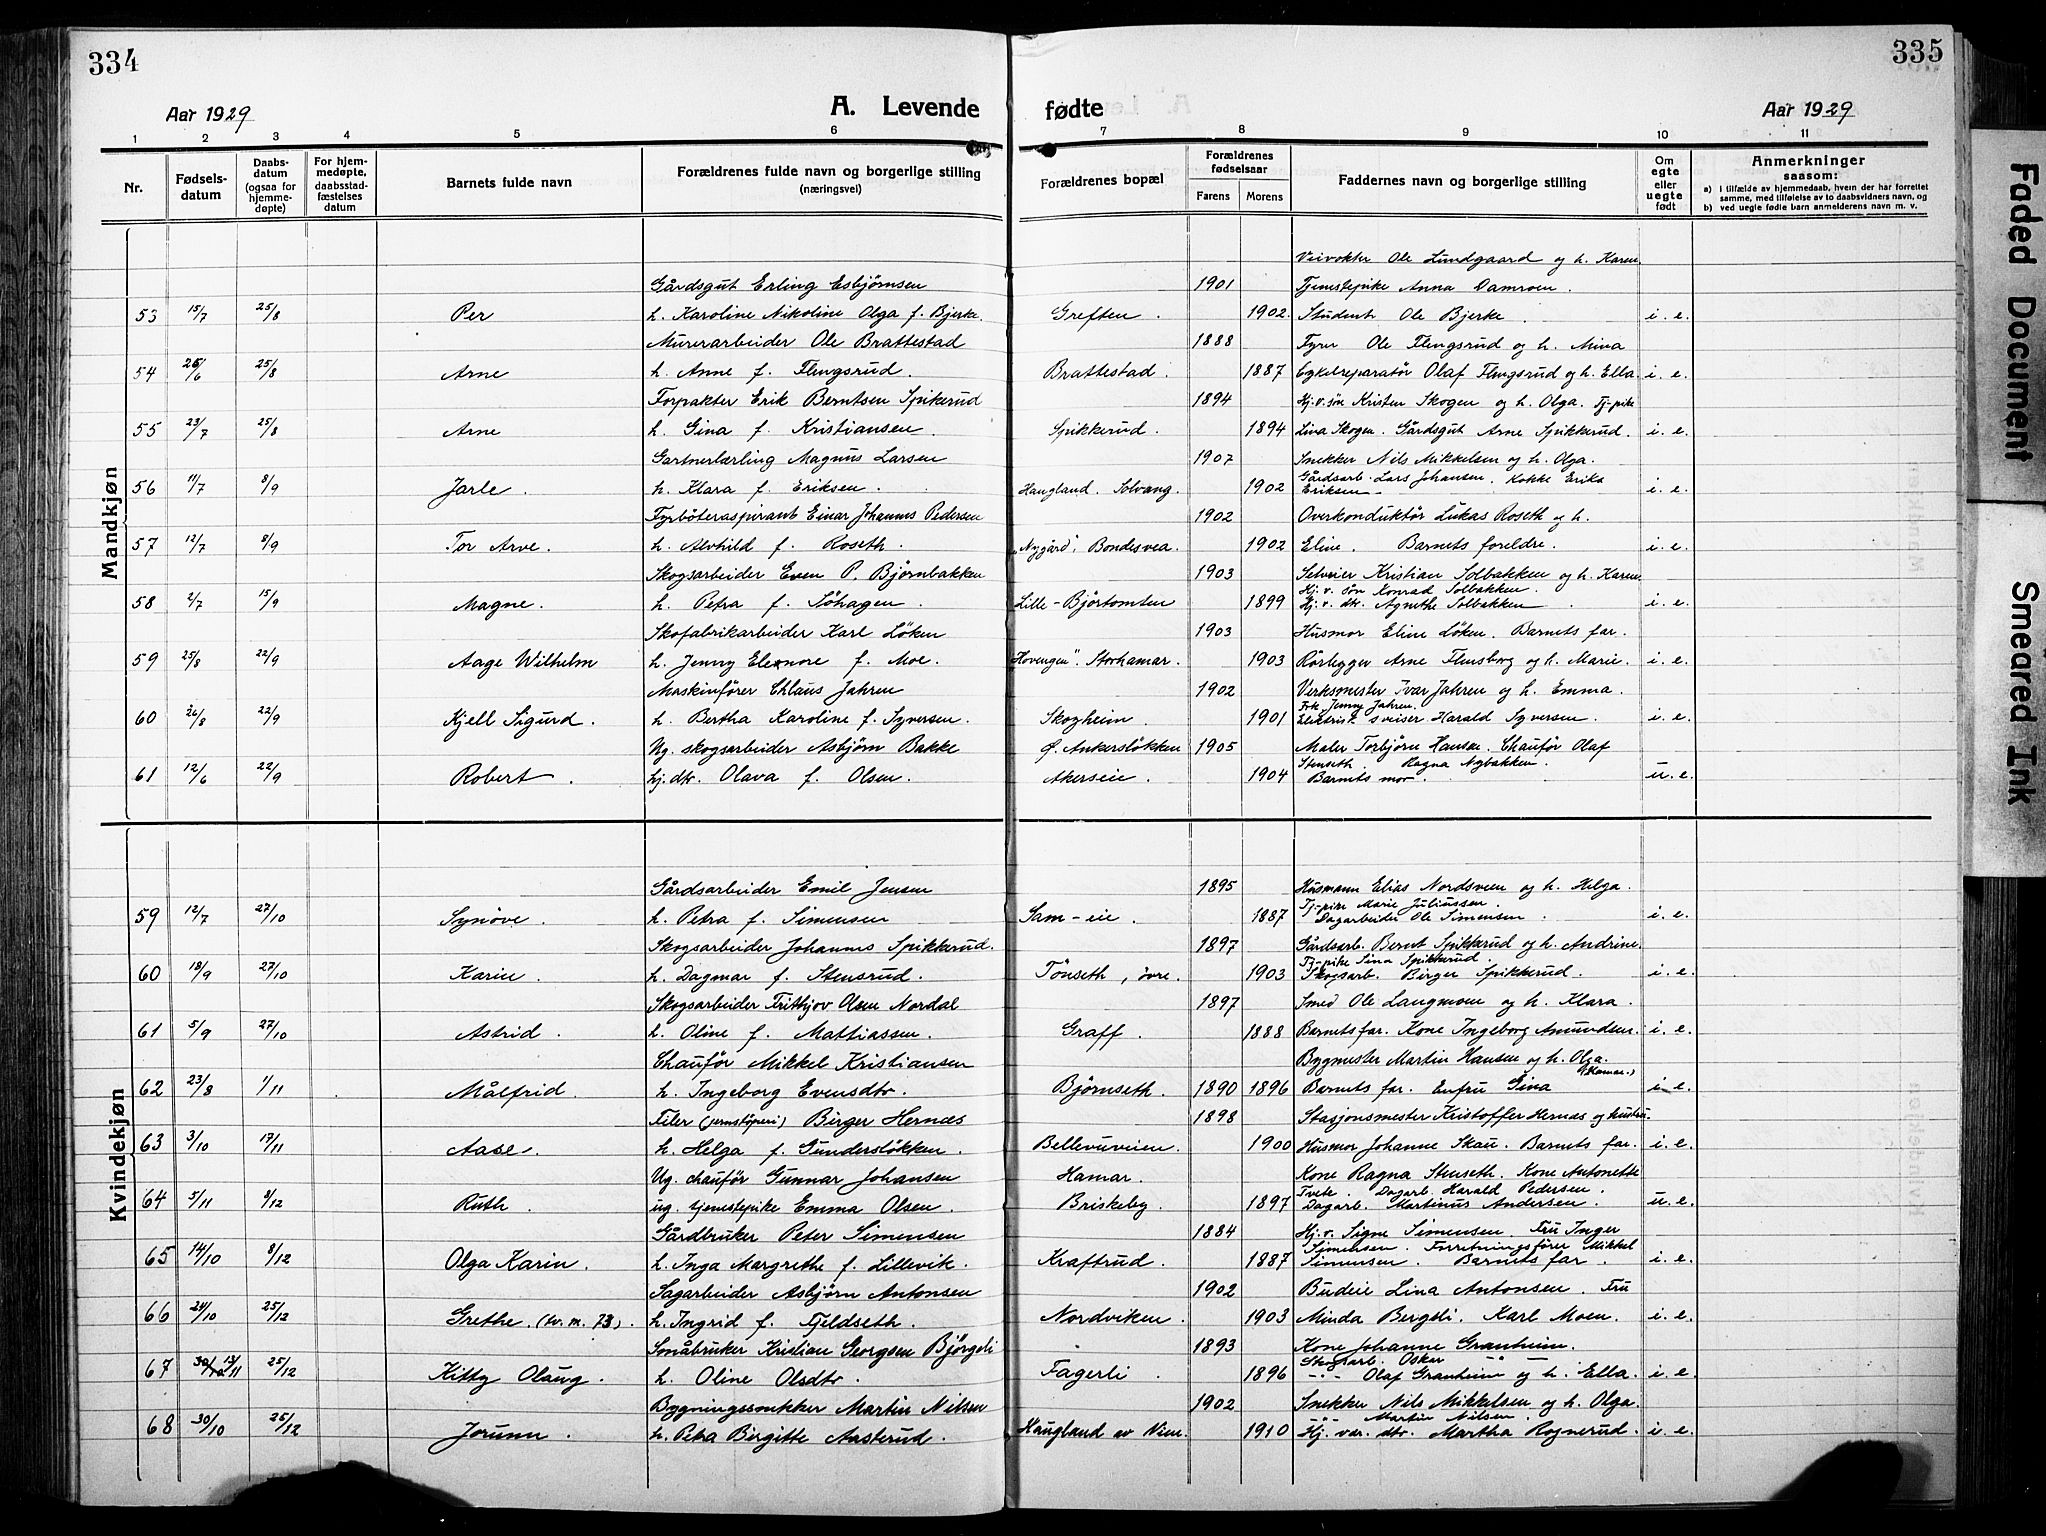 334
335
Aar 1929
A. Levende
fødte
Aar 1929
1 2 3 4 5 6 7 8 9 10 11
Nr.
Fødsels-
datum
Daabs-
datum
(ogsaa for
hjemme-
døpte)
For hjem-
medøpte,
daabsstad-
fæstelses
datum
Barnets fulde navn
Forældrenes fulde navn og borgerlige stilling
(næringsvei)
Forældrenes bopæl
Forældrenes
fødselsaar
Farens
Morens
Faddernes navn og borgerlige stilling
Om
egte
eller
uegte
født
Anmerkninger
saasom:
a) i tilfælde av hjemmedaab, hvem der har forrettet
samme, med tilføielse av to daabsvidners navn, og
b) ved uegte fødte barn anmelderens navn m. v.
Mandkjøn
Veivokter Ole Lundgaard og h. Karen
Gårdsgut Erling Esbjørnsen 1901 Tjenestepike Anna Damroen.
53 15/7 25/8 Per h. Karoline Nikoline Olga f. Bjerke. Greften. 1902. Student Ole Bjerke. i. e.
Murerarbeider Ole Brattestad 1888 Fyrv Ole Flengsrud og h. Mina
54 26/6 25/8 Arne h. Anne f. Flengsrud. Brattestad. 1887 Cykelreparatør Olaf Flengsrud og h. Ella i. e.
Forpakter Erik Berntsen Spikerud 1894 Hj. v. søn Kristen Skogen og h. Olga. Tj-pike
55 23/7 25/8 Arne h. Gina f. Kristiansen. Spikkerud. 1894 Lina Skogen. Gårdsgut Arne Spikkerud. i. e.
Gartnerlærling Magnus Larsen 1907 Snekker Nils Mikkelsen og h. Olga.
56 11/7 8/9 Jarle. h. Klara f. Eriksen. Haugland. Solvang. 1902 Gårdsarb. Lars Johansen. Kokke Erika
Eriksen i. e.
Fyrbøteraspirant Einar Johannes Pedersen 1902 Overkonduktør Lukas Roseth og h.
57 12/7 8/9 Tor Arve. h. Alvhild f. Roseth. "Nygård", Bondesvea. 1902 Eline. Barnets foreldre. i. e.
Skogsarbeider Even P. Bjørnbakken 1903 Selveier Kristian Solbakken og h. Karen
58 2/7 15/9 Magne. h. Petra f. Søhagen. Lille-Bjørtomten 1899 Hj. v. søn Konrad Solbakken.
Hj. v. dtr. Agnethe Solbakken i. e.
Skofabrikarbeider Karl Løken 1903 Husmor Eline Løken. Barnets far.
59 25/8 22/9 Aage Wilhelm h. Jenny Elenore f. Moe. Hovengen". Storhamar. 1903 Rørbygger Arne Flensborg og h. Marie. i. e.
Maskinfører Chlaus Jahren 1902 Verksmester Ivar Jahren og h. Emma.
60 26/8 22/9 Kjell Sigurd. h. Bertha Karoline f. Syversen. Skogheim. 1901 Frk. Jenny Jahren.
Elektrisk sveiser Harald Syversen. i. e.
Ug. skogsarbeider Asbjørn Bakke Ø. Ankersløkken 1905 Maler Torbjørn Hansen. Chauför Olaf
61 12/6 22/9 Robert. hj. dtr. Olava f. Olsen. Akerseie. 1904 Stenseth. Ragna Nybakken.
Barnets mor. u. e.
Kvindekjøn
Gårdsarbeider Emil Jensen 1895 Husmann Elias Nordsveen og h. Helga.
59 12/7 27/10 Synøve. h. Petra f. Simensen Sam-eie. 1887 Tj-pike Marie Juliussen.
Dagarbeider Ole Simensen. i. e.
Skogsarbeider Johannes Spikkerud. 1897 Gårdsarb. Bernt Spikkerud og h. Andrine.
60 18/9 27/10 Karin. h. Dagmar f. Stensrud. Tønseth, øvre. 1903 Tj-pike Sina Spikkerud.
Skogsarb. Birger Spikkerud. i. e.
Skogsarbeider Frithjov Olsen Nordal 1897 Smed Ole Langmoen og h. Klara.
61 5/9 27/10 Astrid. h. Oline f. Mattiassen. Graff. 1888 Barnets far. Kone Ingeborg Amundsen. i. e.
Chauför Mikkel Kristiansen Bygmester Martin Hansen og h. Olga.
62 23/8 1/11 Målfrid. h. Ingeborg Evensdtr. Bjørnseth. 1890 1896 Barnets far. Enfru Gina i. e.
Filer (jernstøperi) Birger Hernæs 1898 Stasjonsmester Kristoffer Hernæs og hustru.
63 3/10 17/11 Aase. h. Helga f. Gundersløkken. Bellevuveien. 1900 Husmor Johanne Skau. Barnets far. i. e.
Ug. chauför Gunnar Johansen Hamar. Kone Ragna Stenseth. Kone Antonette
64 5/11 8/12 Ruth. ug. tjenestepike Emma Olsen. Briskeby. 1897 Tvete. Dagarb. Harald Pedersen.
Dagarb. Martinus Andersen. u. e.
Gårdbruker Peter Simensen 1884 Hj. v. Signe Simensen. Fru Inger
65 14/10 8/12 Olga Karin. h. Inga Margrethe f. Lillevik. Kraftrud. 1887 Simensen. Forretningsfører Mikkel
Simensen. Barnets far. i. e.
Sagarbeider Asbjørn Antonsen 1902 Budeie Lina Antonsen. Fru
66 24/10 25/12 Grethe. (tv. m. 73). h. Ingrid f. Fjeldseth. Nordviken. 1903 Minda Bergsli. Karl Moen. i. e.
Småbruker Kristian Georgsen Bjørgeli 1893 Kone Johanne Granheim.
67 30/10 13/11 25/12 Kitty Olaug. h. Oline Olsdtr. Fagerli. 1896 Skogsarb. Oskar -"-
-"- Olaf Granheim og h. Ella. i. e.
Bygningssnekker Martin Nilsen 1902 Snekker Nils Mikkelsen og h. Olga.
68 30/10 25/12 Jorunn. h. Petra Birgitte Aasterud. Haugland av Vien 1910 -"- Martin Nilsen.
Hj. vær. dtr. Martha Rognerud. i. e.
Faded Document
Smeared Ink